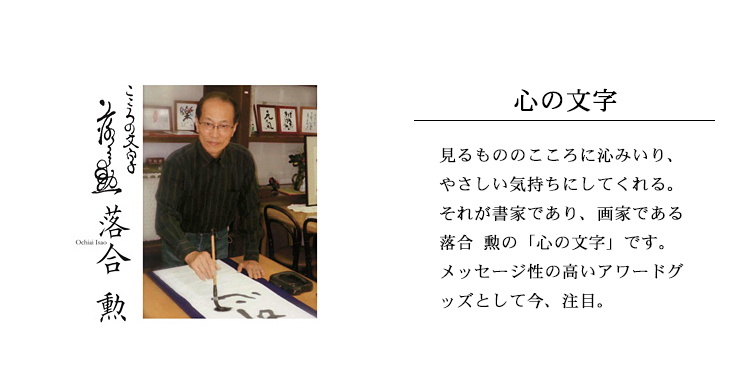 こころの文字
落合勲
落合 勲
Ochiai Isao
元気
心の文字
見るもののこころに沁みいり、
やさしい気持ちにしてくれる。
それが書家であり、画家である
落合 勲の「心の文字」です。
メッセージ性の高いアワードグ
ッズとして今、注目。